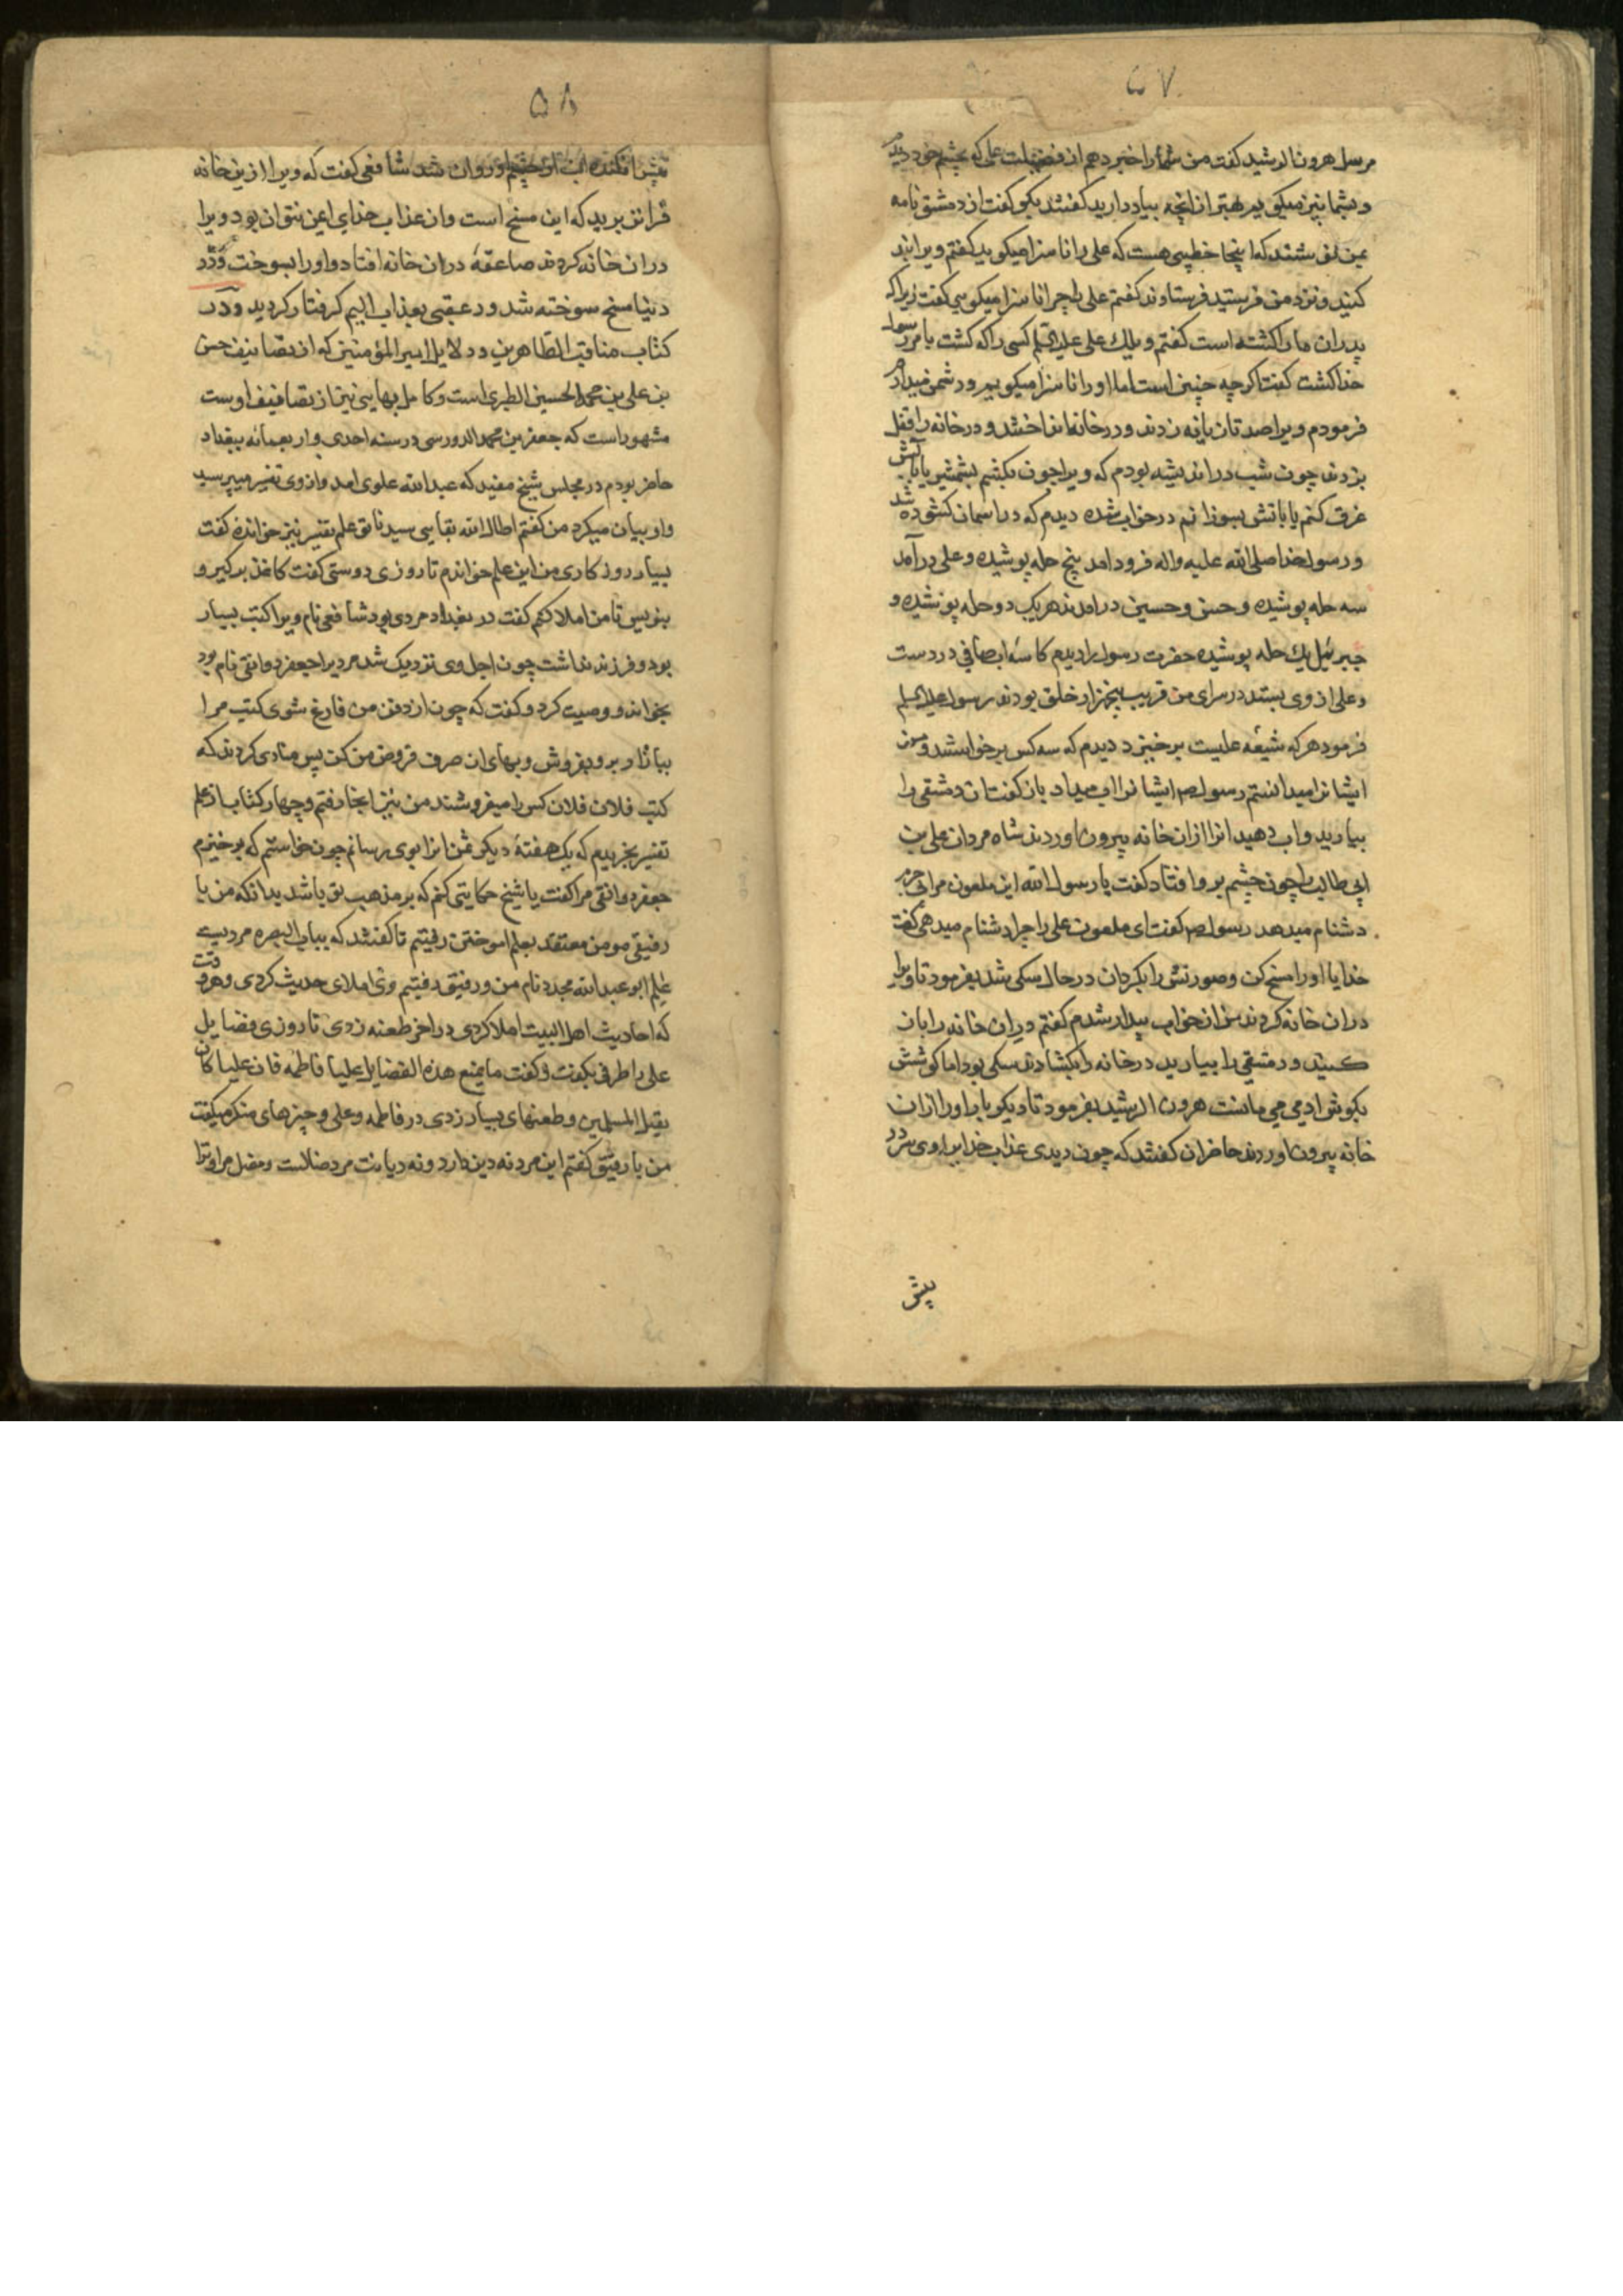 ۵۷
مرسل هرون الرشید کفت من شمارا خبر دهم از فضیلت علی که بچشم خود دیدم
و بشما نیز میکویم بهتر از انچه بیاد دارید کفتند بکو کفت از دمشق نامه
بمن نوشتند که اینجا خطیبی هست که علی را ناسزا میکوید کفتم ویرا بند
کنید و نزد من فرستید فرستادند کفتم علی را چرا ناسزا میکویی کفت زیرا که
پدران ما را کشته است کفتم ویلك علی علیه السلم کسی را که کشت بامر رسول
خدا کشت کفت اکرچه چنین است اما اورا ناسزا میکویم و دشمن میدارم
فرمودم ویرا صد تازیانه زدند و درخانه انداختند و درخانه را قفل
بزدند چون شب در اندیشه بودم که ویرا چون بکشم بشمشیر یا باب
غرق کنم یا باتش بسوزانم در خواب شدم دیدم که در اسمان کشوده شد
و رسول خدا صلی الله علیه واله فرود امد پنج حله پوشیده و علی درآمد
سه حله پوشیده و حسن و حسین درامدند هریک دو حله پوشیده و
جبرئیل یك حله پوشیده حضرت رسول را دیدم کاسه آب صافی در دست
و علی از وی بستد در سرای من قریب پنجهزار خلق بودند رسول علیه السلم
فرمود هر که شیعه علیست برخیزد دیدم که سه کس برخواستند و من
ایشانرا میدانستم رسول ص ایشانرا اب میداد بان کفت ان دمشقی را
بیارید واب دهید انرا ازان خانه بیرون اوردند شاه مردان علی بن
ابی طالب را چون چشم برو افتاد کفت یا رسول الله این ملعون مرا بی جرم
دشنام میدهد رسول ص کفت ای ملعون علی را چرا دشنام میدهی کفت
خدایا اورا مسخ کن و صورتش را بکردان در حال سکی شد بفرمود تا ویرا
دران خانه کردند من از خواب بیدار شدم کفتم دران خانه را باز
کنید و دمشقی را بیارید درخانه را بکشادند سکی بود اما کوشش
بکوش ادمی می مانست هرون الرشید بفرمود تا دیکر بار اورا ازان
خانه بیرون اوردند حاضران کفتند که چون دیدی عذاب خدایرا وی سر در
پیش
۵۸
پیش افکند و اب از چشم او روان شد شافعی کفت که ویرا ازین خانه
فراتر برید که این مسخ است و از عذاب خدای ایمن نتوان بود ویرا
دران خانه کردند صاعقهٔ دران خانه افتاد و اورا بسوخت و در
دنیا مسخ سوخته شد و در عقبی بعذاب الیم کرفتار کردید و در
کتاب مناقب الطاهرین و دلایل امیر المؤمنین که از تصانیف حسن
بن علی بن محمد الحسین الطبری است و کامل بهایی نیز از تصانیف اوست
مشهور است که جعفر بن محمد الدوریسی در سنه احدی و اربعمائه ببغداد
حاضر بودم در مجلس شیخ مفید که عبدالله علوی امد وازوی تفسیر میپرسید
و او بیان میکرد من کفتم اطال الله بقا سیدی تو علم تفسیر نیز خوانده کفت
بسیار روزکاری من این علم خواندم تا روزی دوستی کفت کاغذ برکیر و
بنویس تا من املا کنم کفت در بغداد مردی بود شافعی نام ویرا کتب بسیار
بود و فرزند نداشت چون اجل وی نزدیک شد مردیرا جعفر دوانقی نام بود
بخواند و وصیت کرد و کفت که چون از دفن من فارغ شوی کتب مرا
ببازار برو بفروش و بهای ان صرف قروض من کن پس منادی کردند که
کتب فلان فلان کس را میفروشند من نیز انجا رفتم و چهار کتاب از علم
تفسیر بخریدم که یک هفتهٔ دیکر ثمن انرا بوی رسانم چون خواستم که برخیزم
جعفر دوانقی مرا کفت یا شیخ حکایتی کنم که بر مذهب تو باشد بدانکه من با
رفیقی مومن معتقد بعلم اموختن رفتیم تا کفتند که بباب البصره مردیست
عالم ابو عبدالله محدد نام من و رفیق رفتیم وی املای حدیث کردی و هر وقت
که احادیث اهل البیت املا کردی در اخر طعنه زدی تا روزی فضایل
علی را طرفی بکفت و کفت ما یمنع هذه الفضایل علیا فاطمه فان علیا کان
یقتل المسلمین و طعنهای بسیار زدی در فاطمه و علی و چیزهای منکر میکفت
من با رفیق کفتم این مرد نه دین دارد و نه دیانت مرد ضالست و مضل مرا و ترا